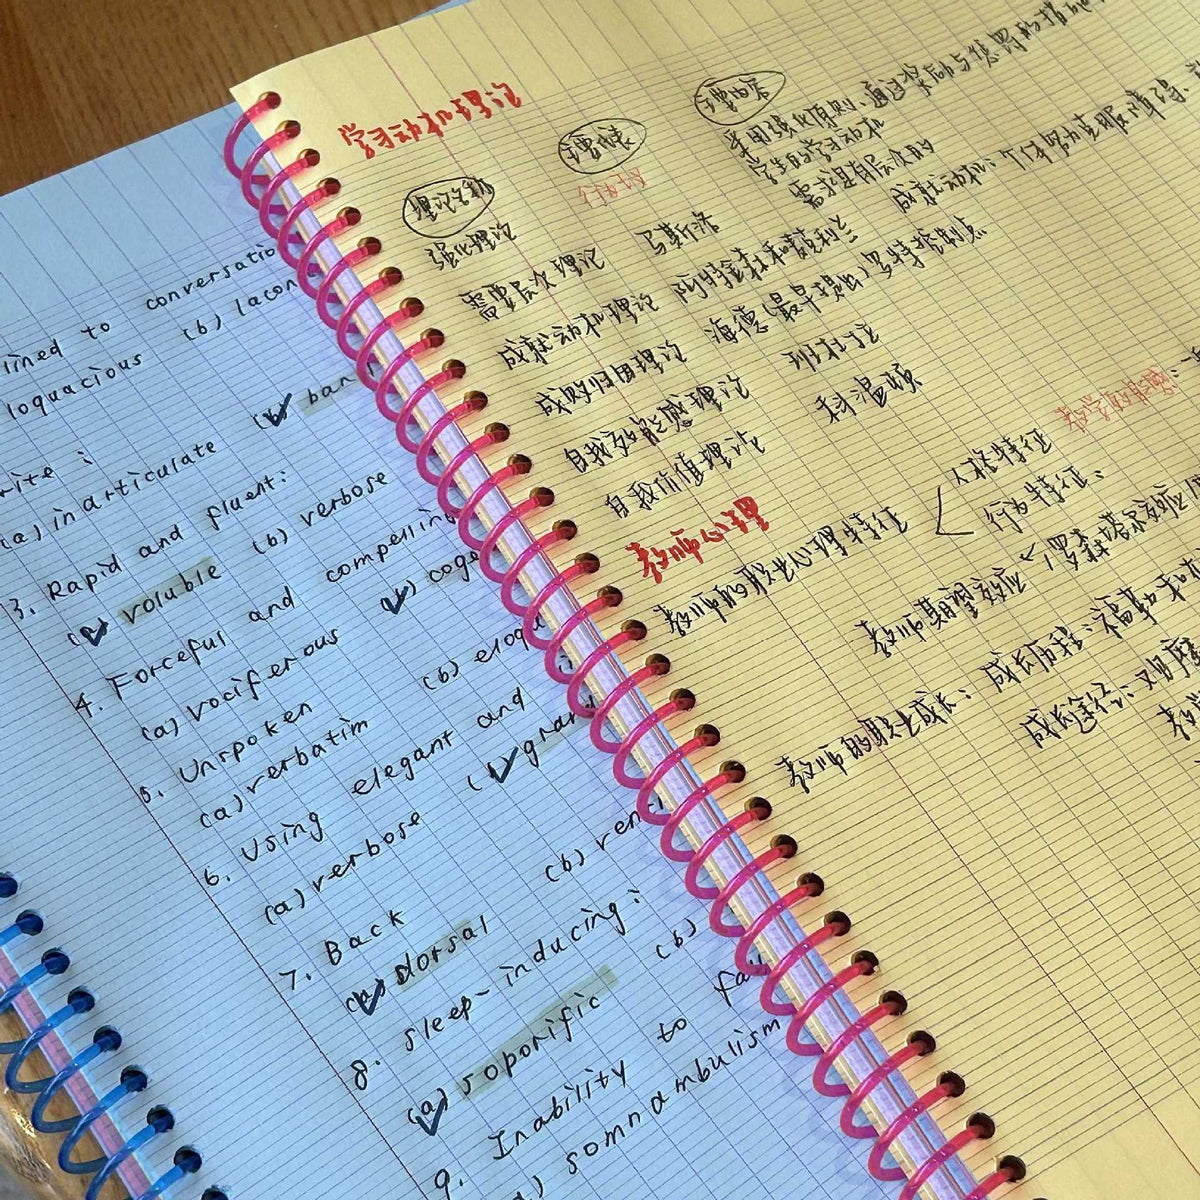 lined to conversatio
loquacious (b) lacon
rite :
(a) inarticulate (b) ban
3. Rapid and fluent:
(a) voluble (b) verbose
4. Forceful and compelling
(a) vociferous (b) coge
5. Unspoken
(a) verbatim (b) eloqu
6. Using elegant and
(a) verbose (b) gran
7. Back
(a) dorsal (b) ren
8. sleep-inducing:
(a) soporific (b)
9. Inability to fa
) somnambulism
学习动机理论
理论名称
强化理论 行为
需要层次理论 马斯洛 需求是有层次的
成就动机理论 阿特金森和麦克利兰 成就动机: 个体努力克服障碍、
成败归因理论 海德(最早提出)罗特控制点
自我效能感理论 班杜拉
自我价值理论 科温顿
采用强化原则、通过奖励与惩罚的
学生的学习动机
教师心理
教师的职业心理特征
人格特征
行为特征: 教学效能感:
教师期望效应 (罗森塔尔效应
教师的职业成长: 成长历程: 福勒和布
成长途径: 观摩
教